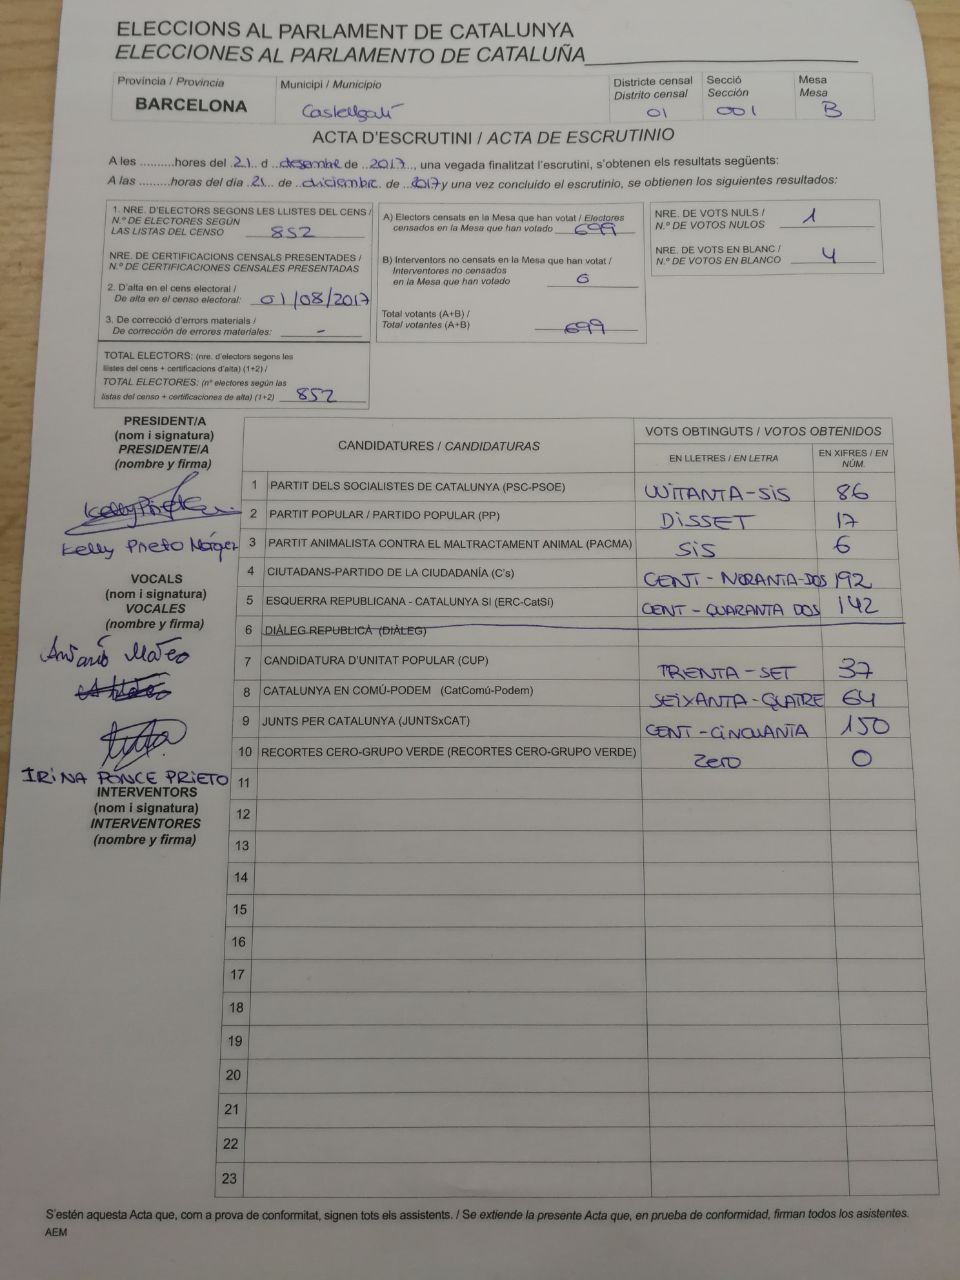 ELECCIONS AL PARLAMENT DE CATALUNYA
ELECCIONES AL PARLAMENTO DE CATALUÑA
Província / Provincia
BARCELONA
Municipi / Municipio
Castellgalí
Districte censal
Distrito censal
01
Secció
Sección
001
Mesa
Mesa
B
ACTA D'ESCRUTINI / ACTA DE ESCRUTINIO
A les .........hores del .21. d ..desembre de ..2017.., una vegada finalitzat l'escrutini, s'obtenen els resultats següents:
A las .........horas del día .21.. de ..diciembre. de ..2017 y una vez concluido el escrutinio, se obtienen los siguientes resultados:
1. NRE. D'ELECTORS SEGONS LES LLISTES DEL CENS /
N.º DE ELECTORES SEGÚN
LAS LISTAS DEL CENSO 852
NRE. DE CERTIFICACIONS CENSALS PRESENTADES /
N.º DE CERTIFICACIONES CENSALES PRESENTADAS
2. D'alta en el cens electoral /
De alta en el censo electoral: 01/08/2017
3. De correcció d'errors materials /
De corrección de errores materiales: -
TOTAL ELECTORS: (nre. d'electors segons les
llistes del cens + certificacions d'alta) (1+2) /
TOTAL ELECTORES: (nº electores según las
listas del censo + certificaciones de alta) (1+2) 852
A) Electors censats en la Mesa que han votat / Electores
censados en la Mesa que han votado 699
B) Interventors no censats en la Mesa que han votat /
Interventores no censados
en la Mesa que han votado 0
Total votants (A+B) /
Total votantes (A+B) 699
NRE. DE VOTS NULS /
N.º DE VOTOS NULOS 1
NRE. DE VOTS EN BLANC /
N.º DE VOTOS EN BLANCO 4
PRESIDENT/A
(nom i signatura)
PRESIDENTE/A
(nombre y firma)
Kelly Prieto
VOCALS
(nom i signatura)
VOCALES
(nombre y firma)
Antonio Mateo
IRINA PONCE PRIETO
INTERVENTORS
(nom i signatura)
INTERVENTORES
(nombre y firma)
CANDIDATURES / CANDIDATURAS
VOTS OBTINGUTS / VOTOS OBTENIDOS
EN LLETRES / EN LETRA
EN XIFRES / EN NÚM.
1 PARTIT DELS SOCIALISTES DE CATALUNYA (PSC-PSOE) UVITANTA-SIS 86
2 PARTIT POPULAR / PARTIDO POPULAR (PP) DISSET 17
3 PARTIT ANIMALISTA CONTRA EL MALTRACTAMENT ANIMAL (PACMA) SIS 6
4 CIUTADANS-PARTIDO DE LA CIUDADANÍA (C's) CENT-NORANTA-DOS 192
5 ESQUERRA REPUBLICANA - CATALUNYA SI (ERC-CatSí) CENT-QUARANTA DOS 142
6 DIÀLEG REPUBLICÀ (DIÀLEG)
7 CANDIDATURA D'UNITAT POPULAR (CUP) TRENTA-SET 37
8 CATALUNYA EN COMÚ-PODEM (CatComú-Podem) SEIXANTA-QUATRE 64
9 JUNTS PER CATALUNYA (JUNTSxCAT) CENT-CINQUANTA 150
10 RECORTES CERO-GRUPO VERDE (RECORTES CERO-GRUPO VERDE) ZERO 0
11
12
13
14
15
16
17
18
19
20
21
22
23
S'estén aquesta Acta que, com a prova de conformitat, signen tots els assistents. / Se extiende la presente Acta que, en prueba de conformidad, firman todos los asistentes.
AEM